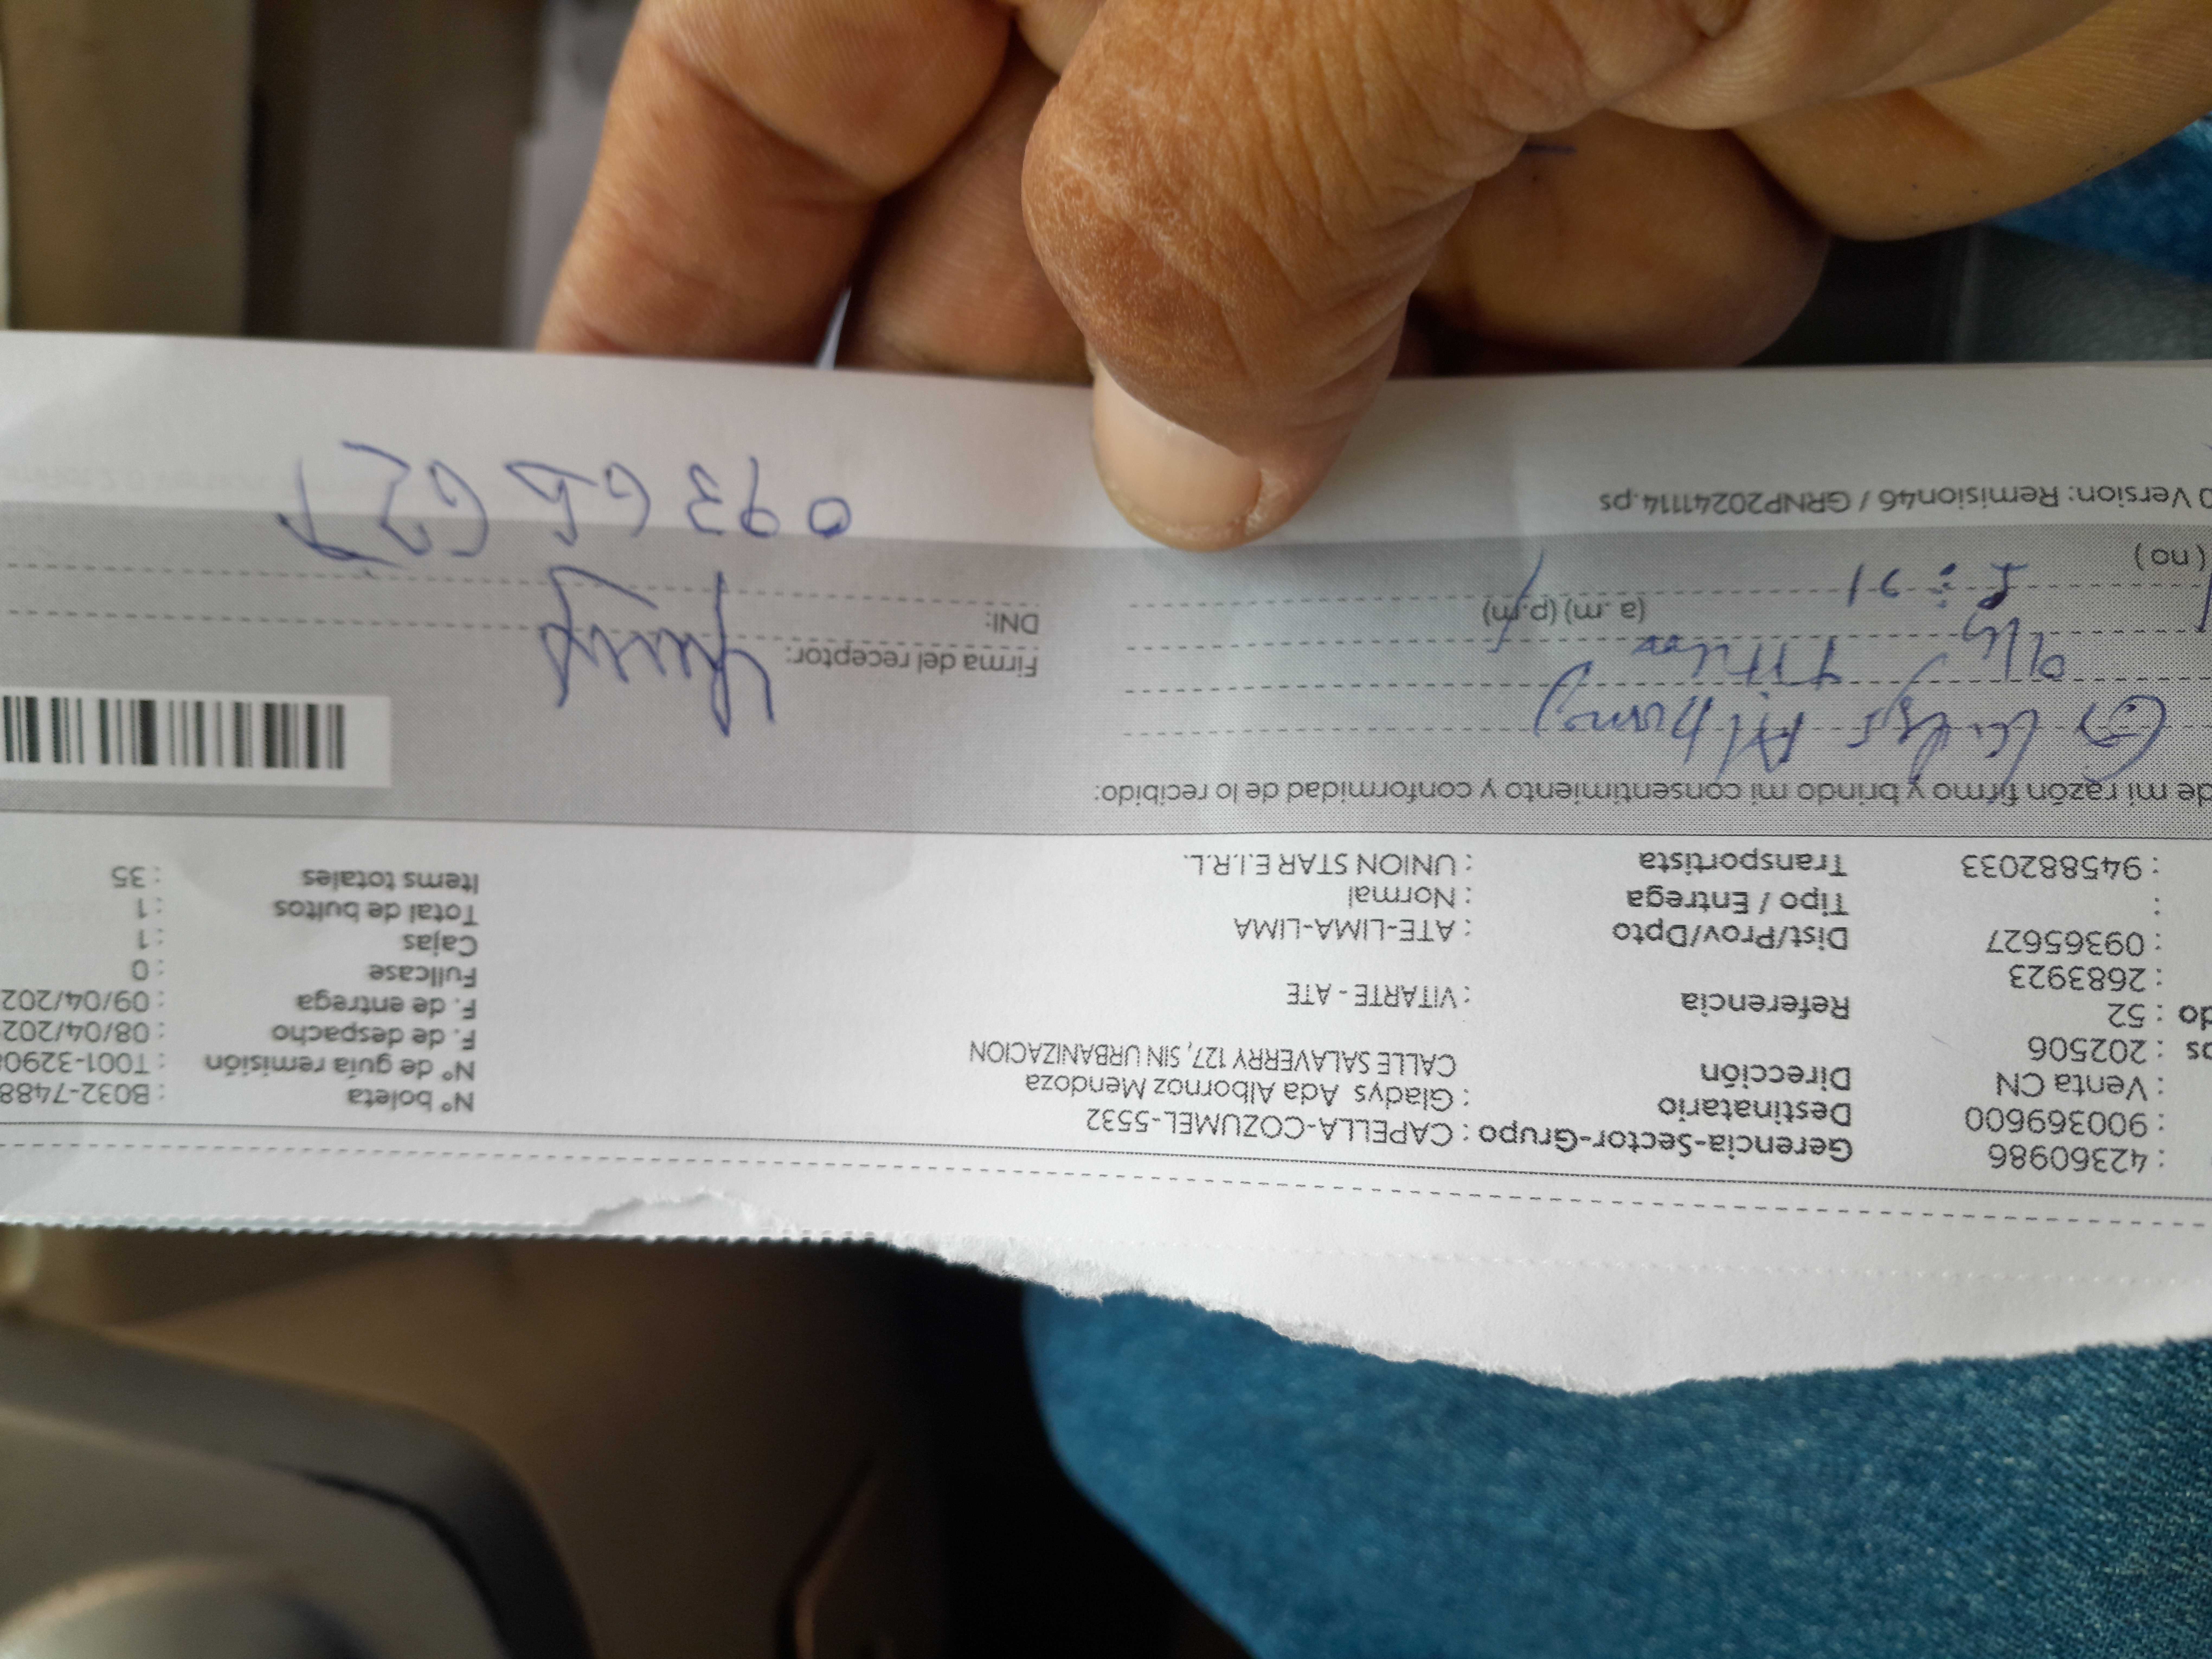 : 42360986 Gerencia-Sector-Grupo : CAPELLA-COZUMEL-5532 N° boleta : B032-7488
: 900369600 Destinatario : Gladys Ada Albornoz Mendoza N° de guía remisión : T001-3290
: Venta CN Dirección CALLE SALAVERRY 127, SIN URBANIZACION F. de despacho : 08/04/202
os : 202506 F. de entrega : 09/04/202
do : 52 Referencia : VITARTE - ATE Fullcase : 0
: 2683923 Cajas : 1
: 09365627 Dist/Prov/Dpto : ATE-LIMA-LIMA Total de bultos : 1
: Tipo / Entrega : Normal Items totales : 35
: 945882033 Transportista : UNION STAR E.I.R.L.
de mi razón firmo y brindo mi consentimiento y conformidad de lo recibido:
Gladys Albornoz
Firma del receptor:
Titular
(a.m) (p.m) DNI:
(no)
09365627
0 Version: Remision46 / GRNP20241114.ps